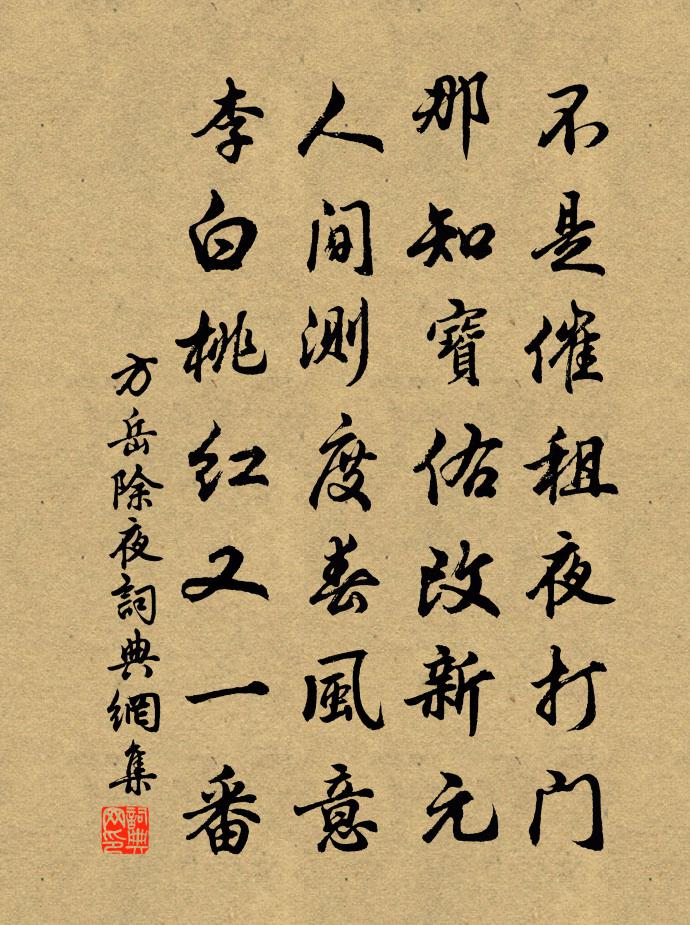 不是催租夜打門
那知寶佑改新元
人間測度春風意
李白桃紅又一番
方岳除夜詞典網集
詞典網印